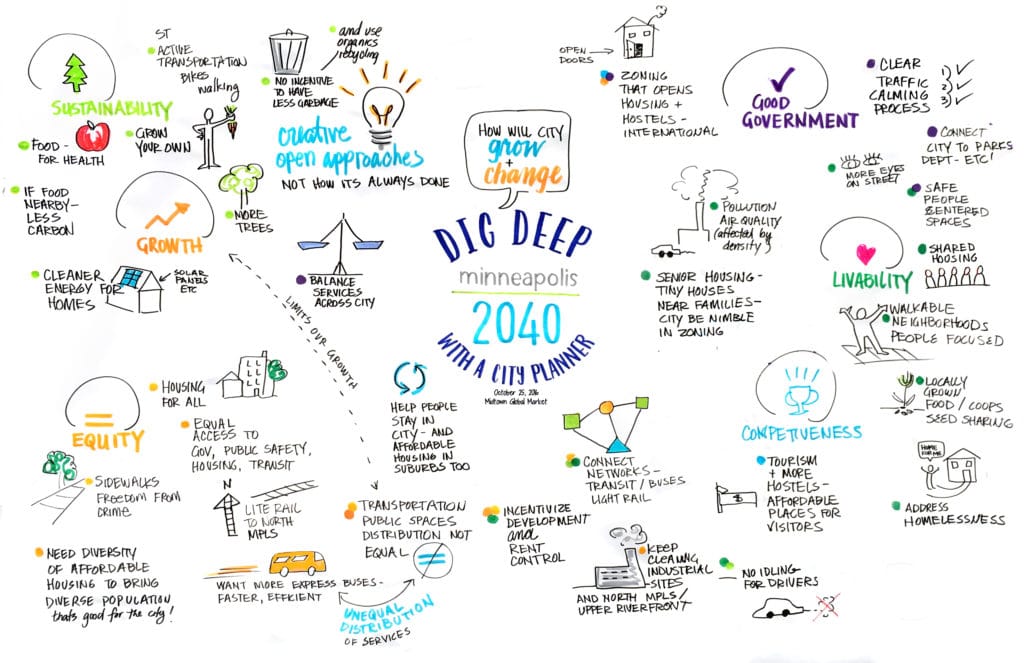 SUSTAINABILITY
ST
ACTIVE
TRANSPORTATION
BIKES
walking
FOOD -
FOR HEALTH
GROW
YOUR OWN
IF FOOD
NEARBY-
LESS
CARBON
GROWTH
MORE
TREES
CLEANER
ENERGY FOR
HOMES
SOLAR
PANELS
ETC
and use
organics
recycling
NO INCENTIVE
TO HAVE
LESS GARBAGE
creative
open approaches
NOT HOW ITS ALWAYS DONE
BALANCE
SERVICES
ACROSS CITY
LIMITS OUR GROWTH
HOW WILL CITY
grow
+
change
DIG DEEP
minneapolis
2040
WITH A CITY PLANNER
October 25, 2016
Midtown Global Market
OPEN
DOORS
ZONING
THAT OPENS
HOUSING +
HOSTELS -
INTERNATIONAL
GOOD
GOVERNMENT
CLEAR
TRAFFIC
CALMING
PROCESS
1)
2)
3)
CONNECT
CITY TO PARKS
DEPT - ETC!
MORE EYES
ON STREET
SAFE
PEOPLE
CENTERED
SPACES
POLLUTION
AIR QUALITY
(affected by
density)
SENIOR HOUSING -
TINY HOUSES
NEAR FAMILIES-
CITY BE NIMBLE
IN ZONING
LIVABILITY
SHARED
HOUSING
WALKABLE
NEIGHBORHOODS
PEOPLE FOCUSED
LOCALLY
GROWN
FOOD / COOPS
SEED SHARING
HOME
FOR ME
ADDRESS
HOMELESSNESS
COMPETIVENESS
TOURISM
+ MORE
HOSTELS-
AFFORDABLE
PLACES FOR
VISITORS
NO IDLING
FOR DRIVERS
EQUITY
HOUSING
FOR ALL
EQUAL
ACCESS TO
GOV, PUBLIC SAFETY,
HOUSING, TRANSIT
SIDEWALKS
FREEDOM FROM
CRIME
N
LITE RAIL
TO NORTH
MPLS
NEED DIVERSITY
OF AFFORDABLE
HOUSING TO BRING
DIVERSE POPULATION
thats good for the city!
WANT MORE EXPRESS BUSES-
FASTER, EFFICIENT
HELP PEOPLE
STAY IN
CITY - AND
AFFORDABLE
HOUSING IN
SUBURBS TOO
TRANSPORTATION
PUBLIC SPACES
DISTRIBUTION NOT
EQUAL
UNEQUAL
DISTRIBUTION
OF SERVICES
INCENTIVIZE
DEVELOPMENT
and
RENT
CONTROL
CONNECT
NETWORKS-
TRANSIT / BUSES
LIGHT RAIL
KEEP
CLEANING
INDUSTRIAL
SITES
AND NORTH MPLS /
UPPER RIVERFRONT